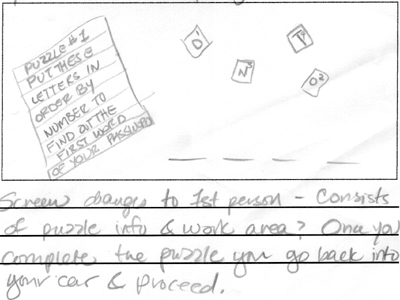 PUZZLE #1
PUT THESE
LETTERS IN
ORDER BY
NUMBER TO
FIND OUT THE
FIRST WORD
OF YOUR PASSWORD
D1
T4
N3
O2
Screen changes to 1st person - Consists
of puzzle info & work area? Once you
complete the puzzle you go back into
your car & proceed.